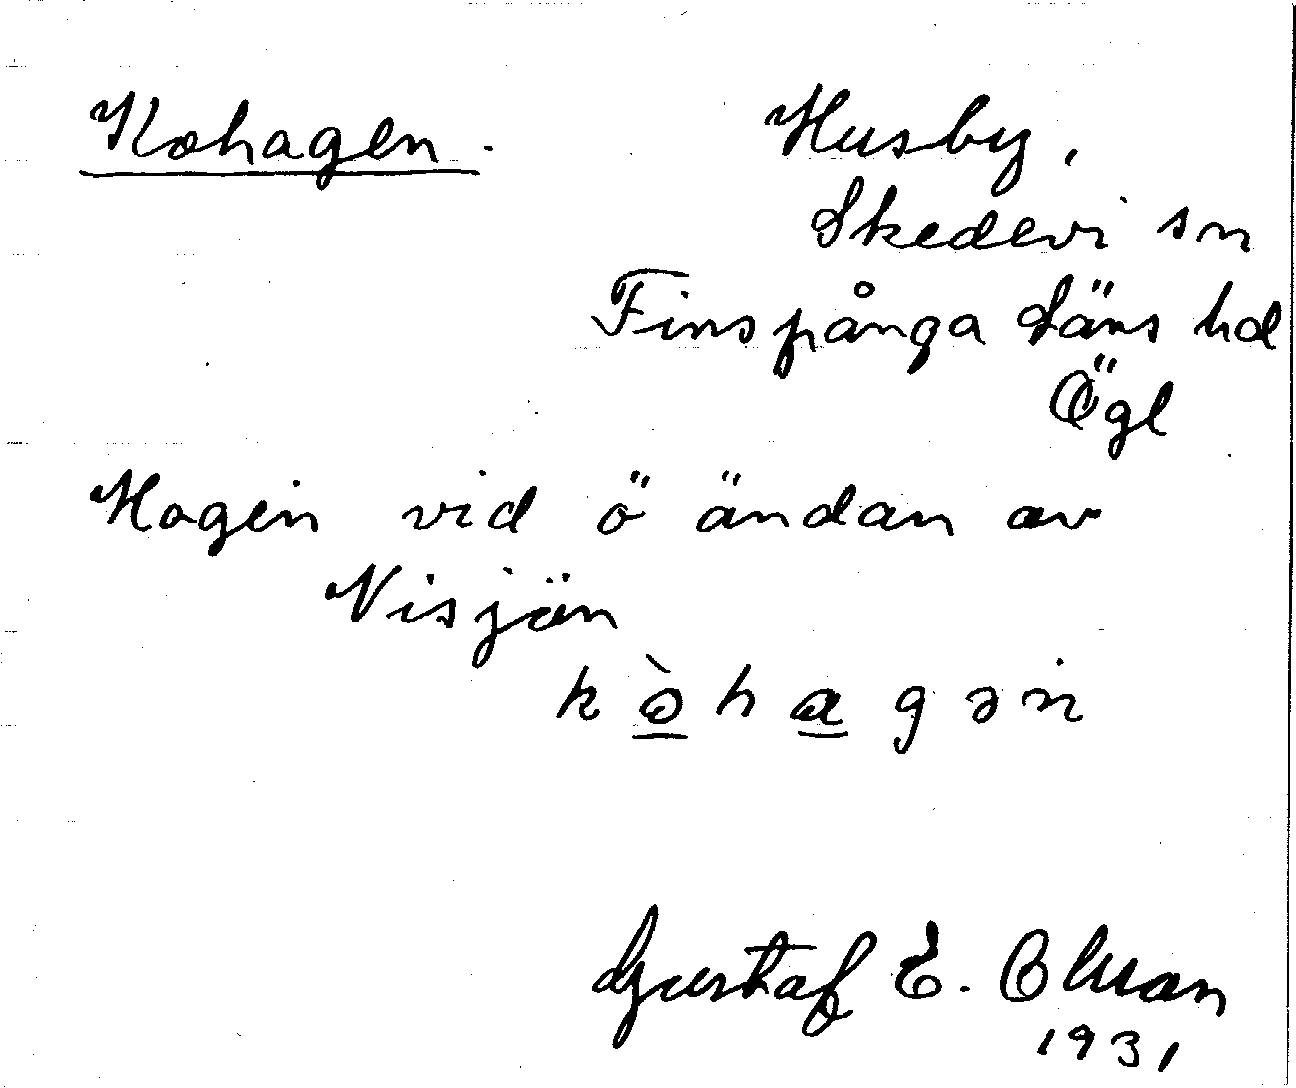 Kohagen.
Husby,
Skedevi sn
Finspånga Läns hd
Ögl
Hagen vid ö ändan av
Nisjön
kòhagən
Gustaf E. Olsson
1931